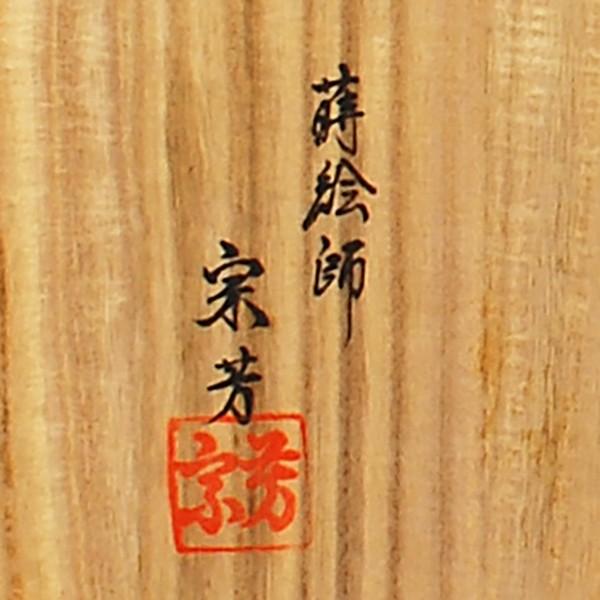 蒔絵師
宗芳
宗芳